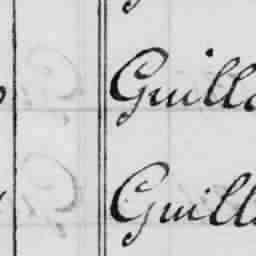 Guilla
Guill